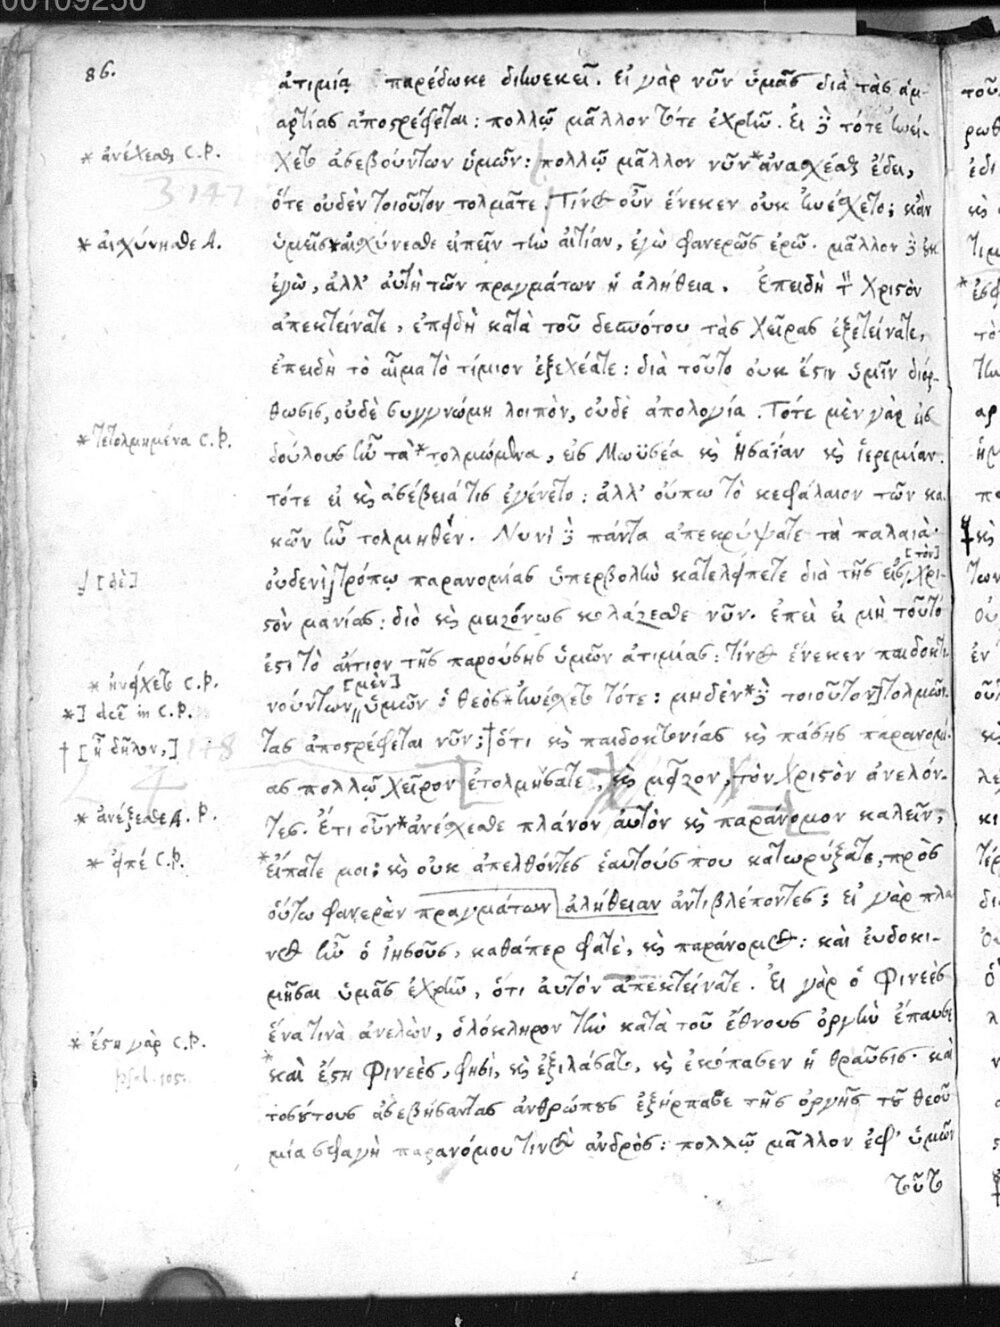 00109250
86.
ἀτιμίᾳ παρέδωκε διηνεκεῖ. Εἰ γὰρ νῦν ὑμᾶς διὰ τὰς ἁμ-
αρτίας ἀποςρέφεται: πολλῷ μᾶλλον τότε ἐχρῆν. Εἰ δὲ τότε ἠνεί-
* ἀνέχεσθαι C.P.
χετο ἀσεβούντων ὑμῶν: πολλῷ μᾶλλον νῦν *ἀνασχέσθαι ἔδει,
3 147
ὅτε οὐδὲν τοιοῦτον τολμᾶτε. Τίνος οὖν ἕνεκεν οὐκ ἠνέσχετο; κἂν
* αἰσχύνησθε A.
ὑμεῖς *αἰσχύνεσθε εἰπεῖν τὴν αἰτίαν, ἐγὼ φανερῶς ἐρῶ. μᾶλλον δὲ οὐκ
ἐγὼ, ἀλλ' αὐτὴ τῶν πραγμάτων ἡ ἀλήθεια. Ἐπειδὴ τὸν Χριςὸν
ἀπεκτείνατε, ἐπειδὴ κατὰ τοῦ δεσπότου τὰς χεῖρας ἐξετείνατε,
ἐπειδὴ τὸ αἷμα τὸ τίμιον ἐξεχέατε: διὰ τοῦτο οὐκ ἔςιν ὑμῖν διόρ-
θωσις, οὐδὲ συγγνώμη λοιπὸν, οὐδὲ ἀπολογία. Τότε μὲν γὰρ εἰς
* τετολμημένα C.P.
δούλους ἦν τὰ *τολμώμενα, εἰς Μωϋσέα καὶ Ἡσαΐαν καὶ Ἱερεμίαν.
τότε εἰ καὶ ἀσέβειά τις ἐγένετο: ἀλλ' οὔπω τὸ κεφάλαιον τῶν κα-
κῶν ἦν τολμηθέν. Νυνὶ δὲ πάντα ἀπεκρύψατε τὰ παλαιὰ·
[τὸν]
[δὲ]
οὐδενὶ τρόπῳ παρανομίας ὑπερβολὴν κατελίπετε διὰ τῆς εἰς Χρι-
ςὸν μανίας: διὸ καὶ μειζόνως κολάζεσθε νῦν. ἐπεὶ εἰ μὴ τοῦτό
ἐςι τὸ αἴτιον τῆς παρούσης ὑμῶν ἀτιμίας: τίνος ἕνεκεν παιδοκτο-
* ἠνείχετο C.P.
[μὲν]
νούντων ὑμῶν ὁ θεὸς *ἠνέσχετο τότε: μηδὲν *δὲ τοιοῦτον] τολμῶν-
*] deest in C.P.
† [ἢ δῆλον,]
148
τας ἀποςρέφεται νῦν; †ὅτι καὶ παιδοκτονίας καὶ πάσης παρανομί-
ας πολλῷ χεῖρον ἐτολμήσατε, καὶ μεῖζον, τὸν Χριςὸν ἀνελόν-
* ἀνέξεσθε A.P.
τες. Ἔτι οὖν *ἀνέχεσθε πλάνον αὐτὸν καὶ παράνομον καλεῖν,
* εἰπέ C.P.
*εἴπατε μοι; καὶ οὐκ ἀπελθόντες ἑαυτούς που κατωρύξατε, πρὸς
οὕτω φανερὰν πραγμάτων ἀλήθειαν ἀντιβλέποντες; εἰ γὰρ πλά
νος ἦν ὁ Ἰησοῦς, καθάπερ φατὲ, καὶ παράνομος: καὶ εὐδοκι-
μῆσαι ὑμᾶς ἐχρῆν, ὅτι αὐτὸν ἀπεκτείνατε. Εἰ γὰρ ὁ Φινεὲς
ἕνα τινὰ ἀνελὼν, ὁλόκληρον τὴν κατὰ τοῦ ἔθνους ὀργὴν ἔπαυσε
* ἔςη γὰρ C.P.
*καὶ ἔςη Φινεὲς, φησὶ, καὶ ἐξιλάσατο, καὶ ἐκόπασεν ἡ θραῦσις· καὶ
psal. 105.
τοσούτους ἀσεβήσαντας ἀνθρώπους ἐξήρπασε τῆς ὀργῆς τοῦ θεοῦ
μία σφαγὴ παρανόμου τινὸς ἀνδρὸς: πολλῷ μᾶλλον ἐφ' ὑμῶν
τοῦτο